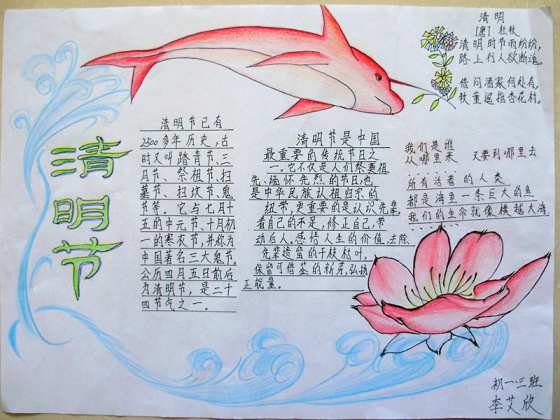 清明节
清明节已有
2500多年历史，古
时又叫踏青节、三
月节、祭祖节、扫
墓节、扫坟节、鬼
节等，它与七月十
五的中元节、十月初
一的寒衣节，并称为
中国著名三大鬼节。
公历四月五日前后
为清明节，是二十
四节气之一。
清明节是中国
最重要的传统节日之
一。它不仅是人们祭奠祖
先、缅怀先烈的节日，也
是中华民族认祖归宗的
纽带，更重要的是认识先辈，
看自己的不足，修正自己，带
动后人。感悟人生的价值，去除
先辈遗留的干枝枯叶，
保留可借鉴的新芽，弘扬
正能量。
清明
[唐] 杜牧
清明时节雨纷纷，
路上行人欲断魂。
借问酒家何处有，
牧童遥指杏花村。
我们是谁
从哪里来 又要到哪里去
所有活着的人类
都是海里一条巨大的鱼
我们的生命就像横越大海
初一·三班
李艾欣